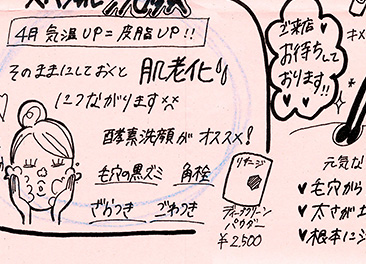 4月 気温UP=皮脂UP!!
そのままにしておくと 肌老化
につながります××
酵素洗顔が オススメ!
毛穴の黒ズミ 角栓
ざらつき ごわつき
リサージ
ディープクリーン
パウダー
¥2,500
ご来店
お待ちして
おります!!
キメ
元気な
♥毛穴から
♥太さが
♥根本に